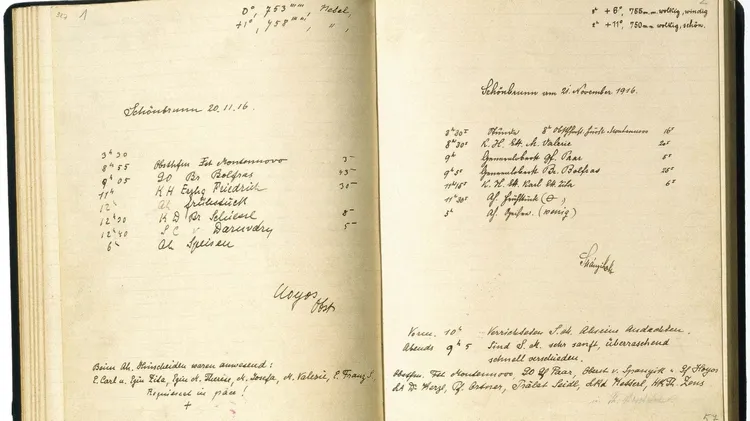 1
0°, 753 mm, Nebel,
+1°, 758 mm, "
Schönbrunn 20.11.16.
3h 30
8h 55 Obsthfm. Fst Montenuovo 3-
9h 05 GO Br Bolfras 45-
11h KH Erzhg Friedrich 30-
12h Ah Frühstück
12h 30 KD Br Schiessl 8-
12h 40 S C v Daruváry 5-
6h Ah Speisen
Hoyos
Obst
Beim Ah. Hinscheiden waren anwesend:
E. Carl u. Egin Zita, Egin M. Theres., M. Josefa, M. Valerie, E. Franz S.
Requiescat in pace!
+
+ 6°, 755 mm wolkig, windig
+ 11°, 750 mm wolkig, schön.
Schönbrunn am 21. November 1916.
8h 30 K. H. M. Valerie
9h Generaloberst Gf. Paar 5-
9h 5 Generaloberst Br. Bolfras 25-
11h 15 K. H. Karl Zita 6-
11h 30 Ah. Frühstück
5h Ah. Speisen. (wenig)
Vorm. 10h Verrichteten S. M. Ahseine Andachten.
Abends 9h 5 Sind S. M. sehr sanft, überraschend
schnell verschieden.
Obsthfm. Fst Montenuovo, GO Gf Paar, Oberst v. Spanyik u. Gf Hoyos
Dr. Ortner, Prälat Seidl,
57